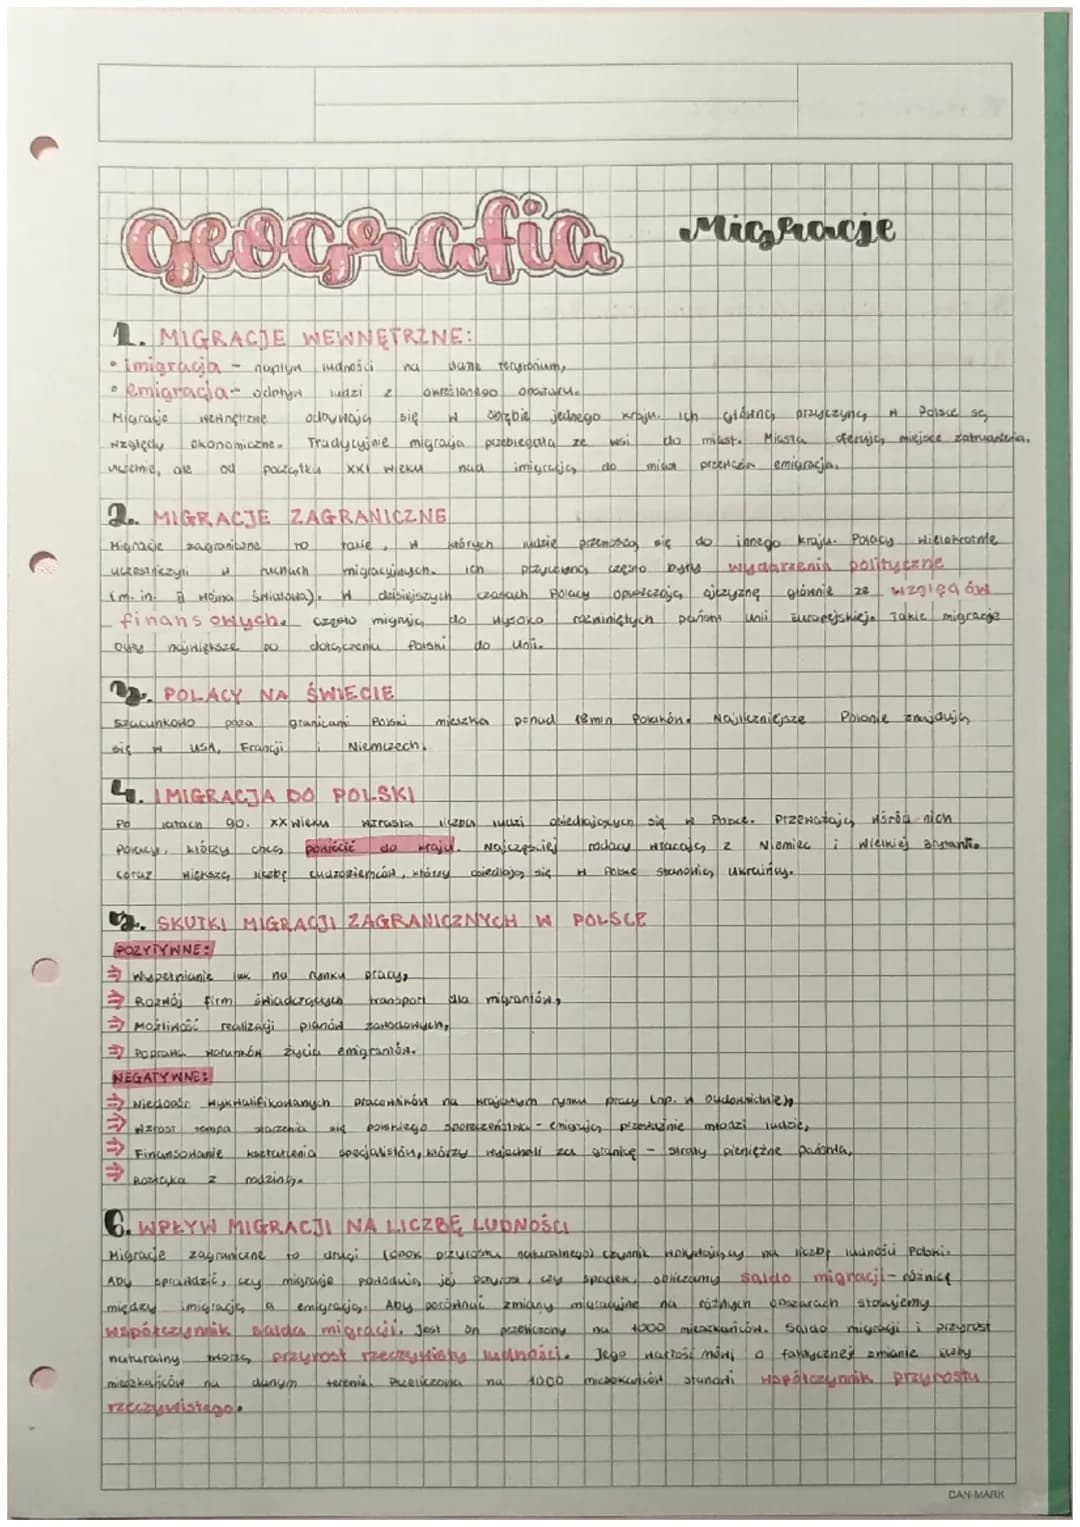 geografia Migracje
1. MIGRACJE WEWNĘTRZNE:
• imigracja - napływ ludności na dane terytorium,
• emigracja - odpływ ludzi z określonego obszaru.
Migracje wewnętrzne odbywają się w obrębie jednego kraju. Ich główną przyczyną w Polsce są
względy ekonomiczne. Tradycyjnie migracja przebiegała ze wsi do miast. Miasta oferują miejsce zatrudnienia,
uczelnie, ale od początku XXI wieku nad imigracją do miast przeważa emigracja.
2. MIGRACJE ZAGRANICZNE
Migracje zagraniczne to takie, w których ludzie przenoszą się do innego kraju. Polacy wielokrotnie
uczestniczyli w ruchach migracyjnych. Ich przyczyną często były wydarzenia polityczne
(m.in. II wojna światowa). W dzisiejszych czasach Polacy opuszczają ojczyznę głównie ze względów
finansowych. Często migrują do wysoko rozwiniętych państw Unii Europejskiej. Takie migracje
były największe po dołączeniu Polski do Unii.
3. POLACY NA ŚWIECIE
Szacunkowo poza granicami Polski mieszka ponad 18mln Polaków. Najliczniejsze Polonie znajdują
się w USA, Francji i Niemczech.
4. IMIGRACJA DO POLSKI
Po latach 90. XX wieku wzrasta liczba ludzi osiedlających się w Polsce. Przeważają wśród nich
Polacy, którzy chcą powrócić do kraju. Najczęściej rodacy wracają z Niemiec i Wielkiej Brytanii.
Coraz większą liczbę cudzoziemców, którzy osiedlają się w Polsce stanowią Ukraińcy.
5. SKUTKI MIGRACJI ZAGRANICZNYCH W POLSCE
POZYTYWNE:
⇒ Wypełnianie luk na rynku pracy,
⇒ Rozwój firm świadczących transport dla migrantów,
⇒ Możliwość realizacji planów zawodowych,
⇒ Poprawa warunków życia emigrantów.
NEGATYWNE:
⇒ Niedobór wykwalifikowanych pracowników na krajowym rynku pracy (np. w budownictwie),
⇒ Wzrost tempa starzenia się polskiego społeczeństwa - emigrują przeważnie młodzi ludzie,
⇒ Finansowanie kształcenia specjalistów, którzy wyjechali za granicę - straty pieniężne państwa,
⇒ Rozłąka z rodziną.
6. WPŁYW MIGRACJI NA LICZBĘ LUDNOŚCI
Migracje zagraniczne to drugi (obok przyrostu naturalnego) czynnik wpływający na liczbę ludności Polski.
Aby sprawdzić, czy migracje powodują jej przyrost, czy spadek, obliczamy saldo migracji - różnicę
między imigracją a emigracją. Aby porównać zmiany migracyjne na różnych obszarach stosujemy
współczynnik salda migracji. Jest on przeliczony na 1000 mieszkańców. Saldo migracji i przyrost
naturalny tworzą przyrost rzeczywisty ludności. Jego wartość mówi o faktycznej zmianie liczby
mieszkańców na danym terenie. Przeliczona na 1000 mieszkańców stanowi współczynnik przyrostu
rzeczywistego.
DAN-MARK